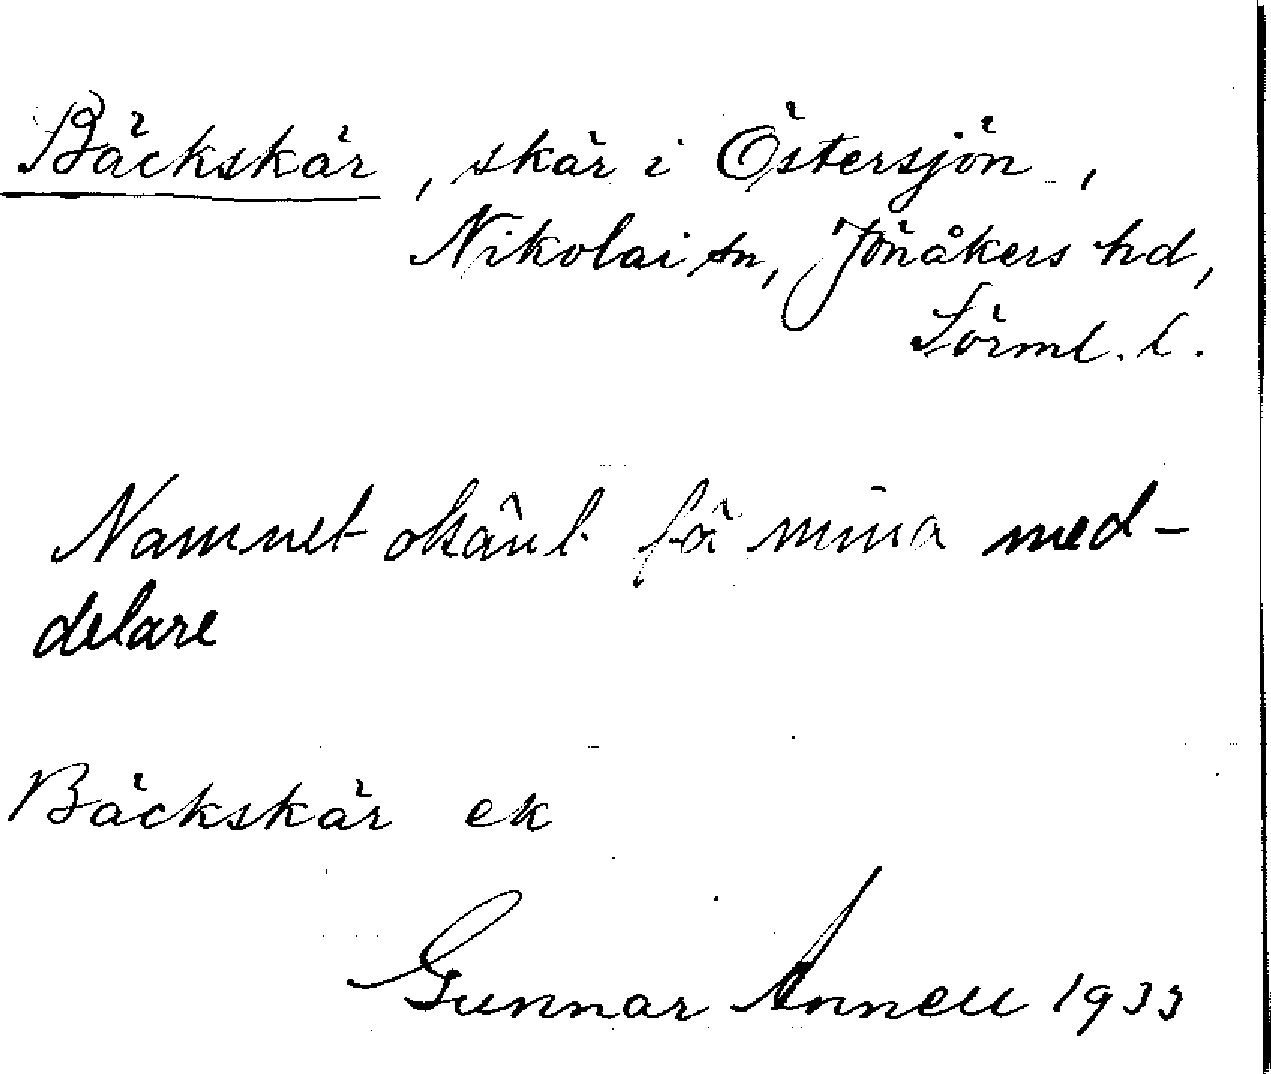 Bäckskär, skär i Östersjön,
Nikolai sn, Jönåkers hd,
Sörml. l.
Namnet okänt fö mina med-
delare
Bäckskär ek
Gunnar Annell 1933